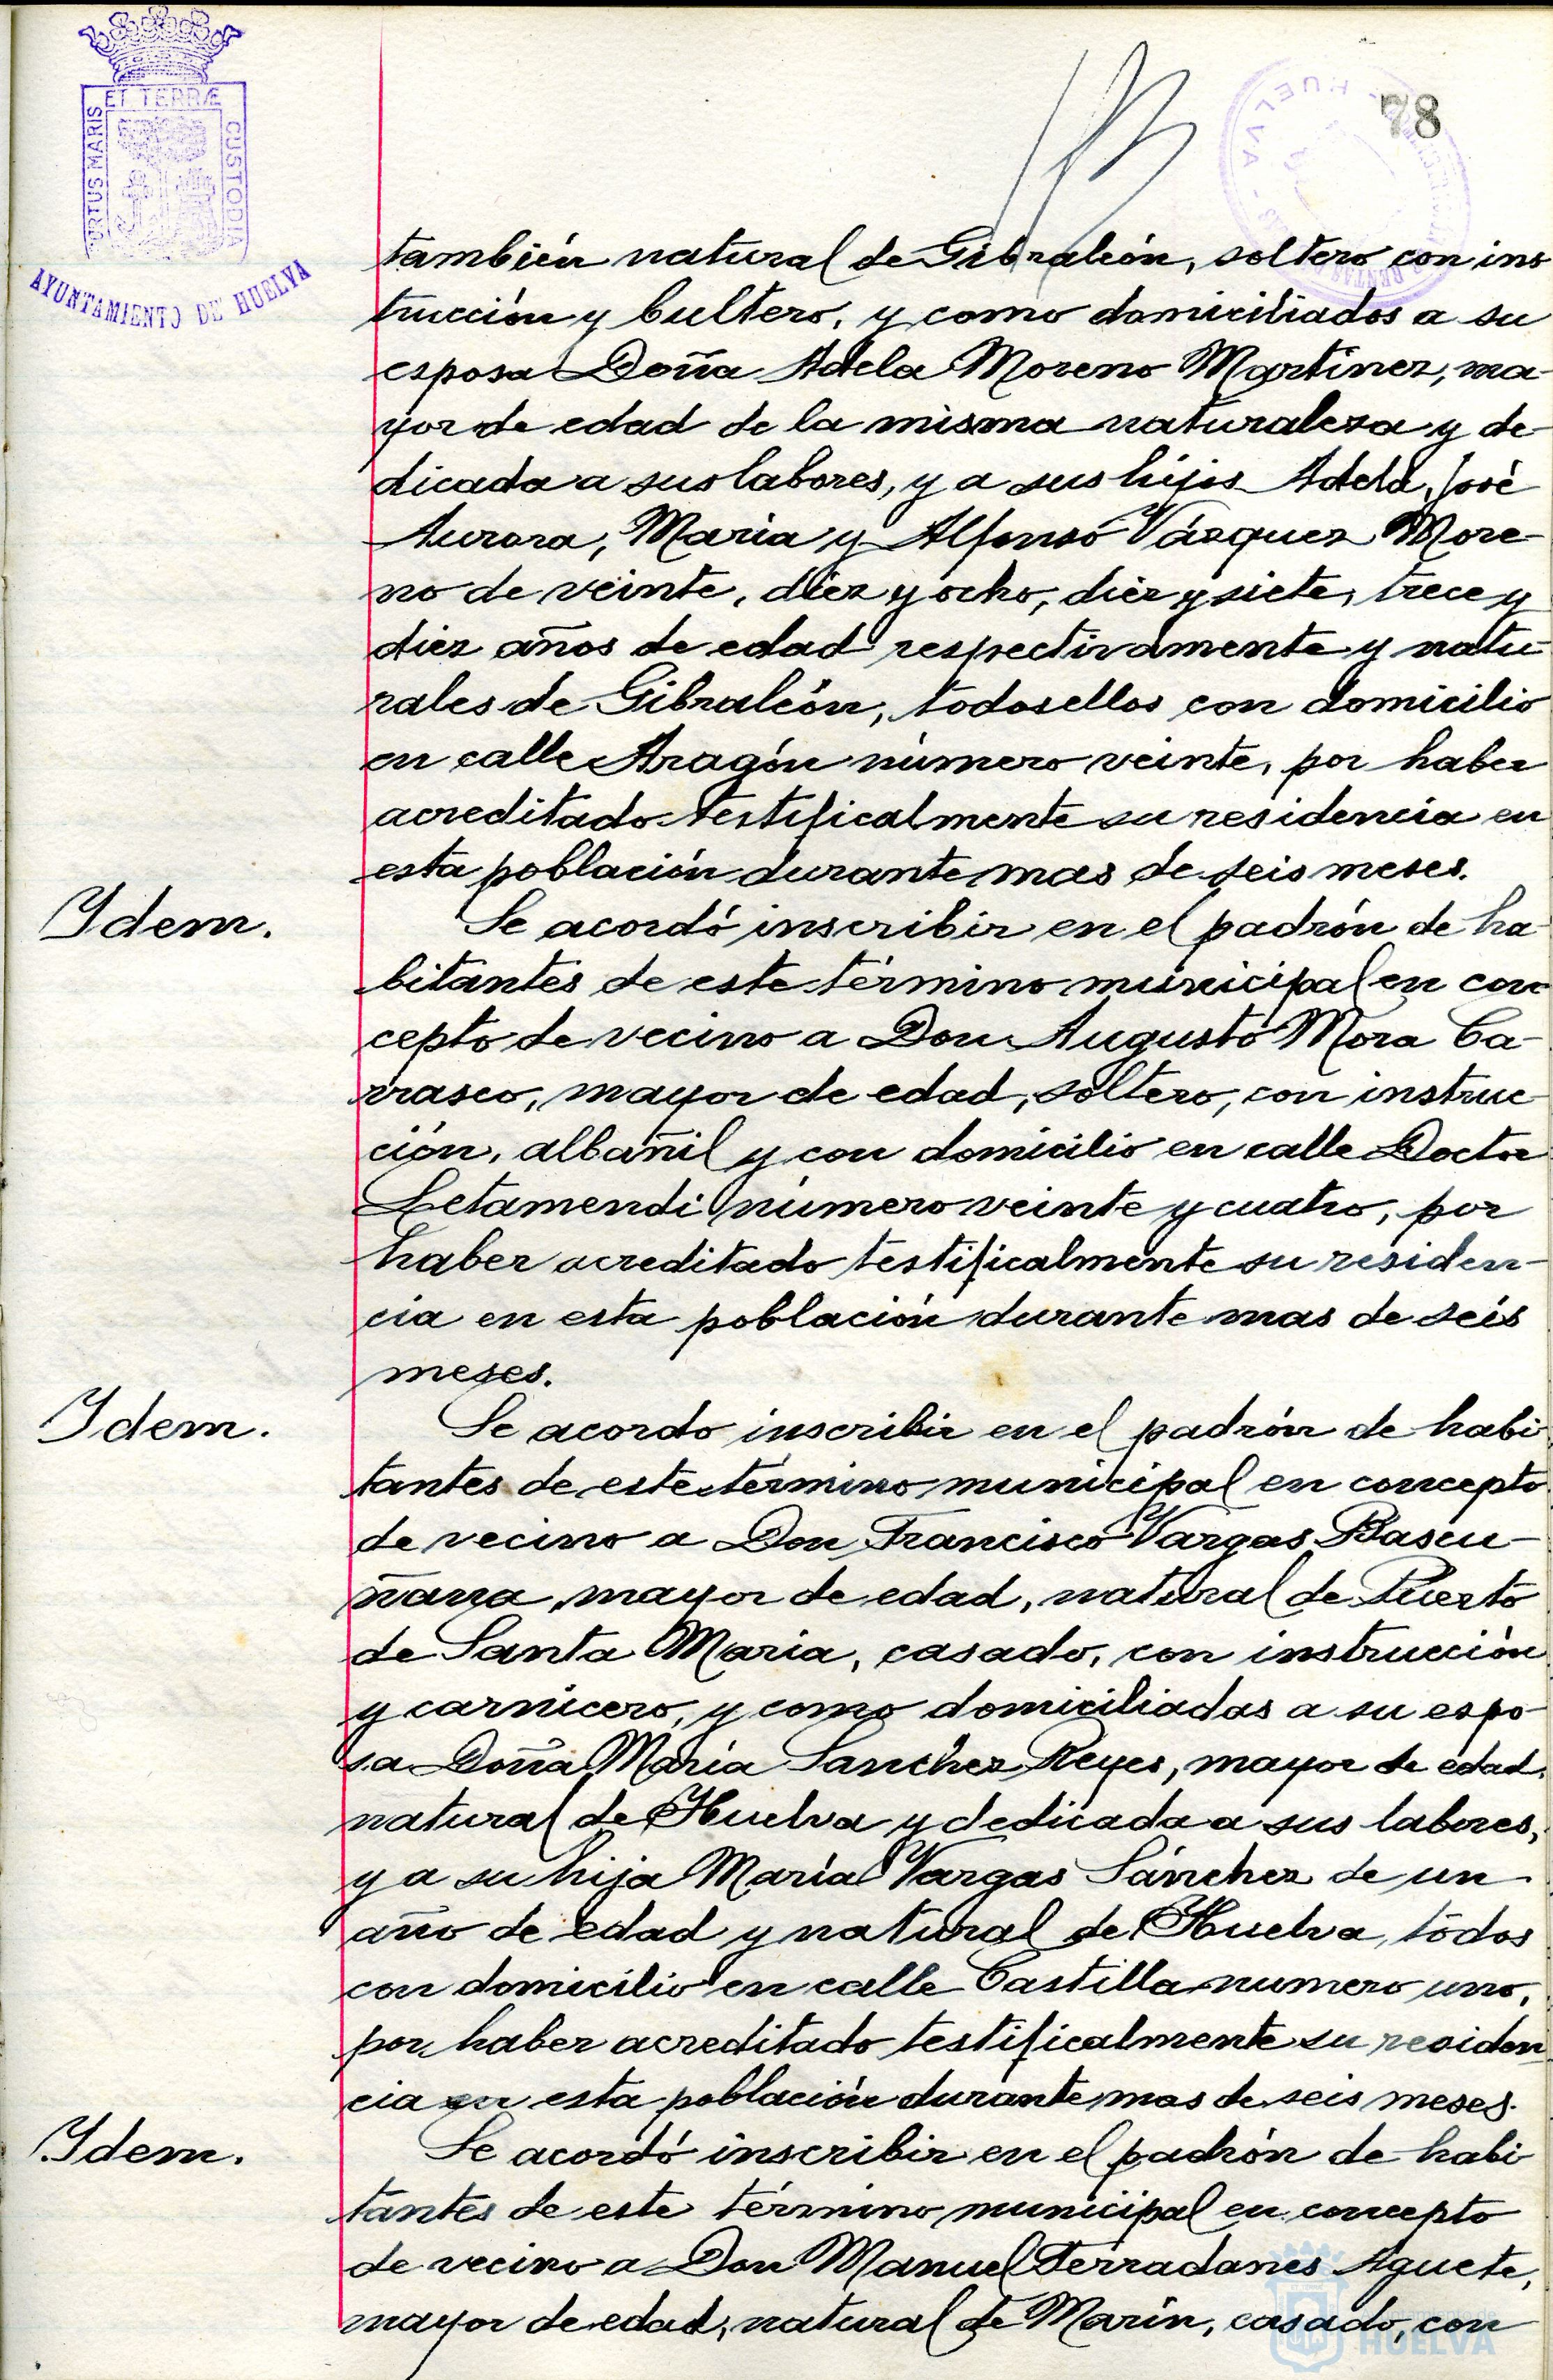 78
PORTUS MARIS
ET TERRÆ
CUSTODIA
AYUNTAMIENTO DE HUELVA
HUELVA
también natural de Gibraleón, soltero con ins
trucción y bultero, y como domiciliados a su
esposa Doña Adela Moreno Martinez, ma-
yor de edad de la misma naturaleza y de-
dicada a sus labores, y a sus hijos Adela, José
Aurora, Maria y Alfonso Vázquez More-
no de veinte, diez y ocho, diez y siete, trece y
diez años de edad respectivamente y natu-
rales de Gibraleón, todos ellos con domicilio
en calle Aragón número veinte, por haber
acreditado testificalmente su residencia en
esta población durante mas de seis meses.
Idem.
Se acordó inscribir en el padrón de ha-
bitantes de este término municipal en con
cepto de vecino a Don Augusto Mora Ca-
rrasco, mayor de edad, soltero, con instruc-
ción, albañil y con domicilio en calle Doctor
Letamendi número veinte y cuatro, por
haber acreditado testificalmente su residen-
cia en esta población durante mas de seis
meses.
Idem.
Se acordo inscribir en el padrón de habi
tantes de este término municipal en concepto
de vecino a Don Francisco Vargas Bascu-
ñana, mayor de edad, natural de Puerto
de Santa Maria, casado, con instrucción
y carnicero, y como domiciliadas a su espo-
sa Doña Maria Sanchez Reyes, mayor de edad,
natural de Huelva y dedicada a sus labores,
y a su hija María Vargas Sánchez de un
año de edad y natural de Huelva, todos
con domicilio en calle Castilla numero uno,
por haber acreditado testificalmente su residen
cia en esta población durante mas de seis meses.
Idem.
Se acordó inscribir en el padrón de habi
tantes de este término municipal en concepto
de vecino a Don Manuel Ferradanes Aguete,
mayor de edad, natural de Marin, casado, con
HUELVA